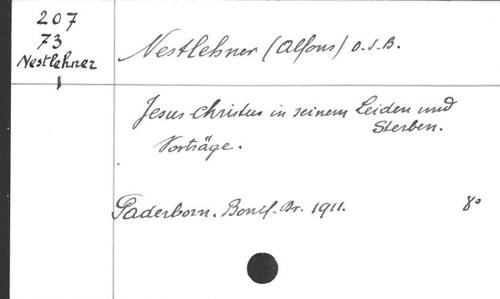 207
73
Nestlehner
Nestlehner (Alfons) O.S.B.
Jesus Christus in seinem Leiden und
Sterben.
Vorträge.
Paderborn. Bonif.-Dr. 1911.
8°